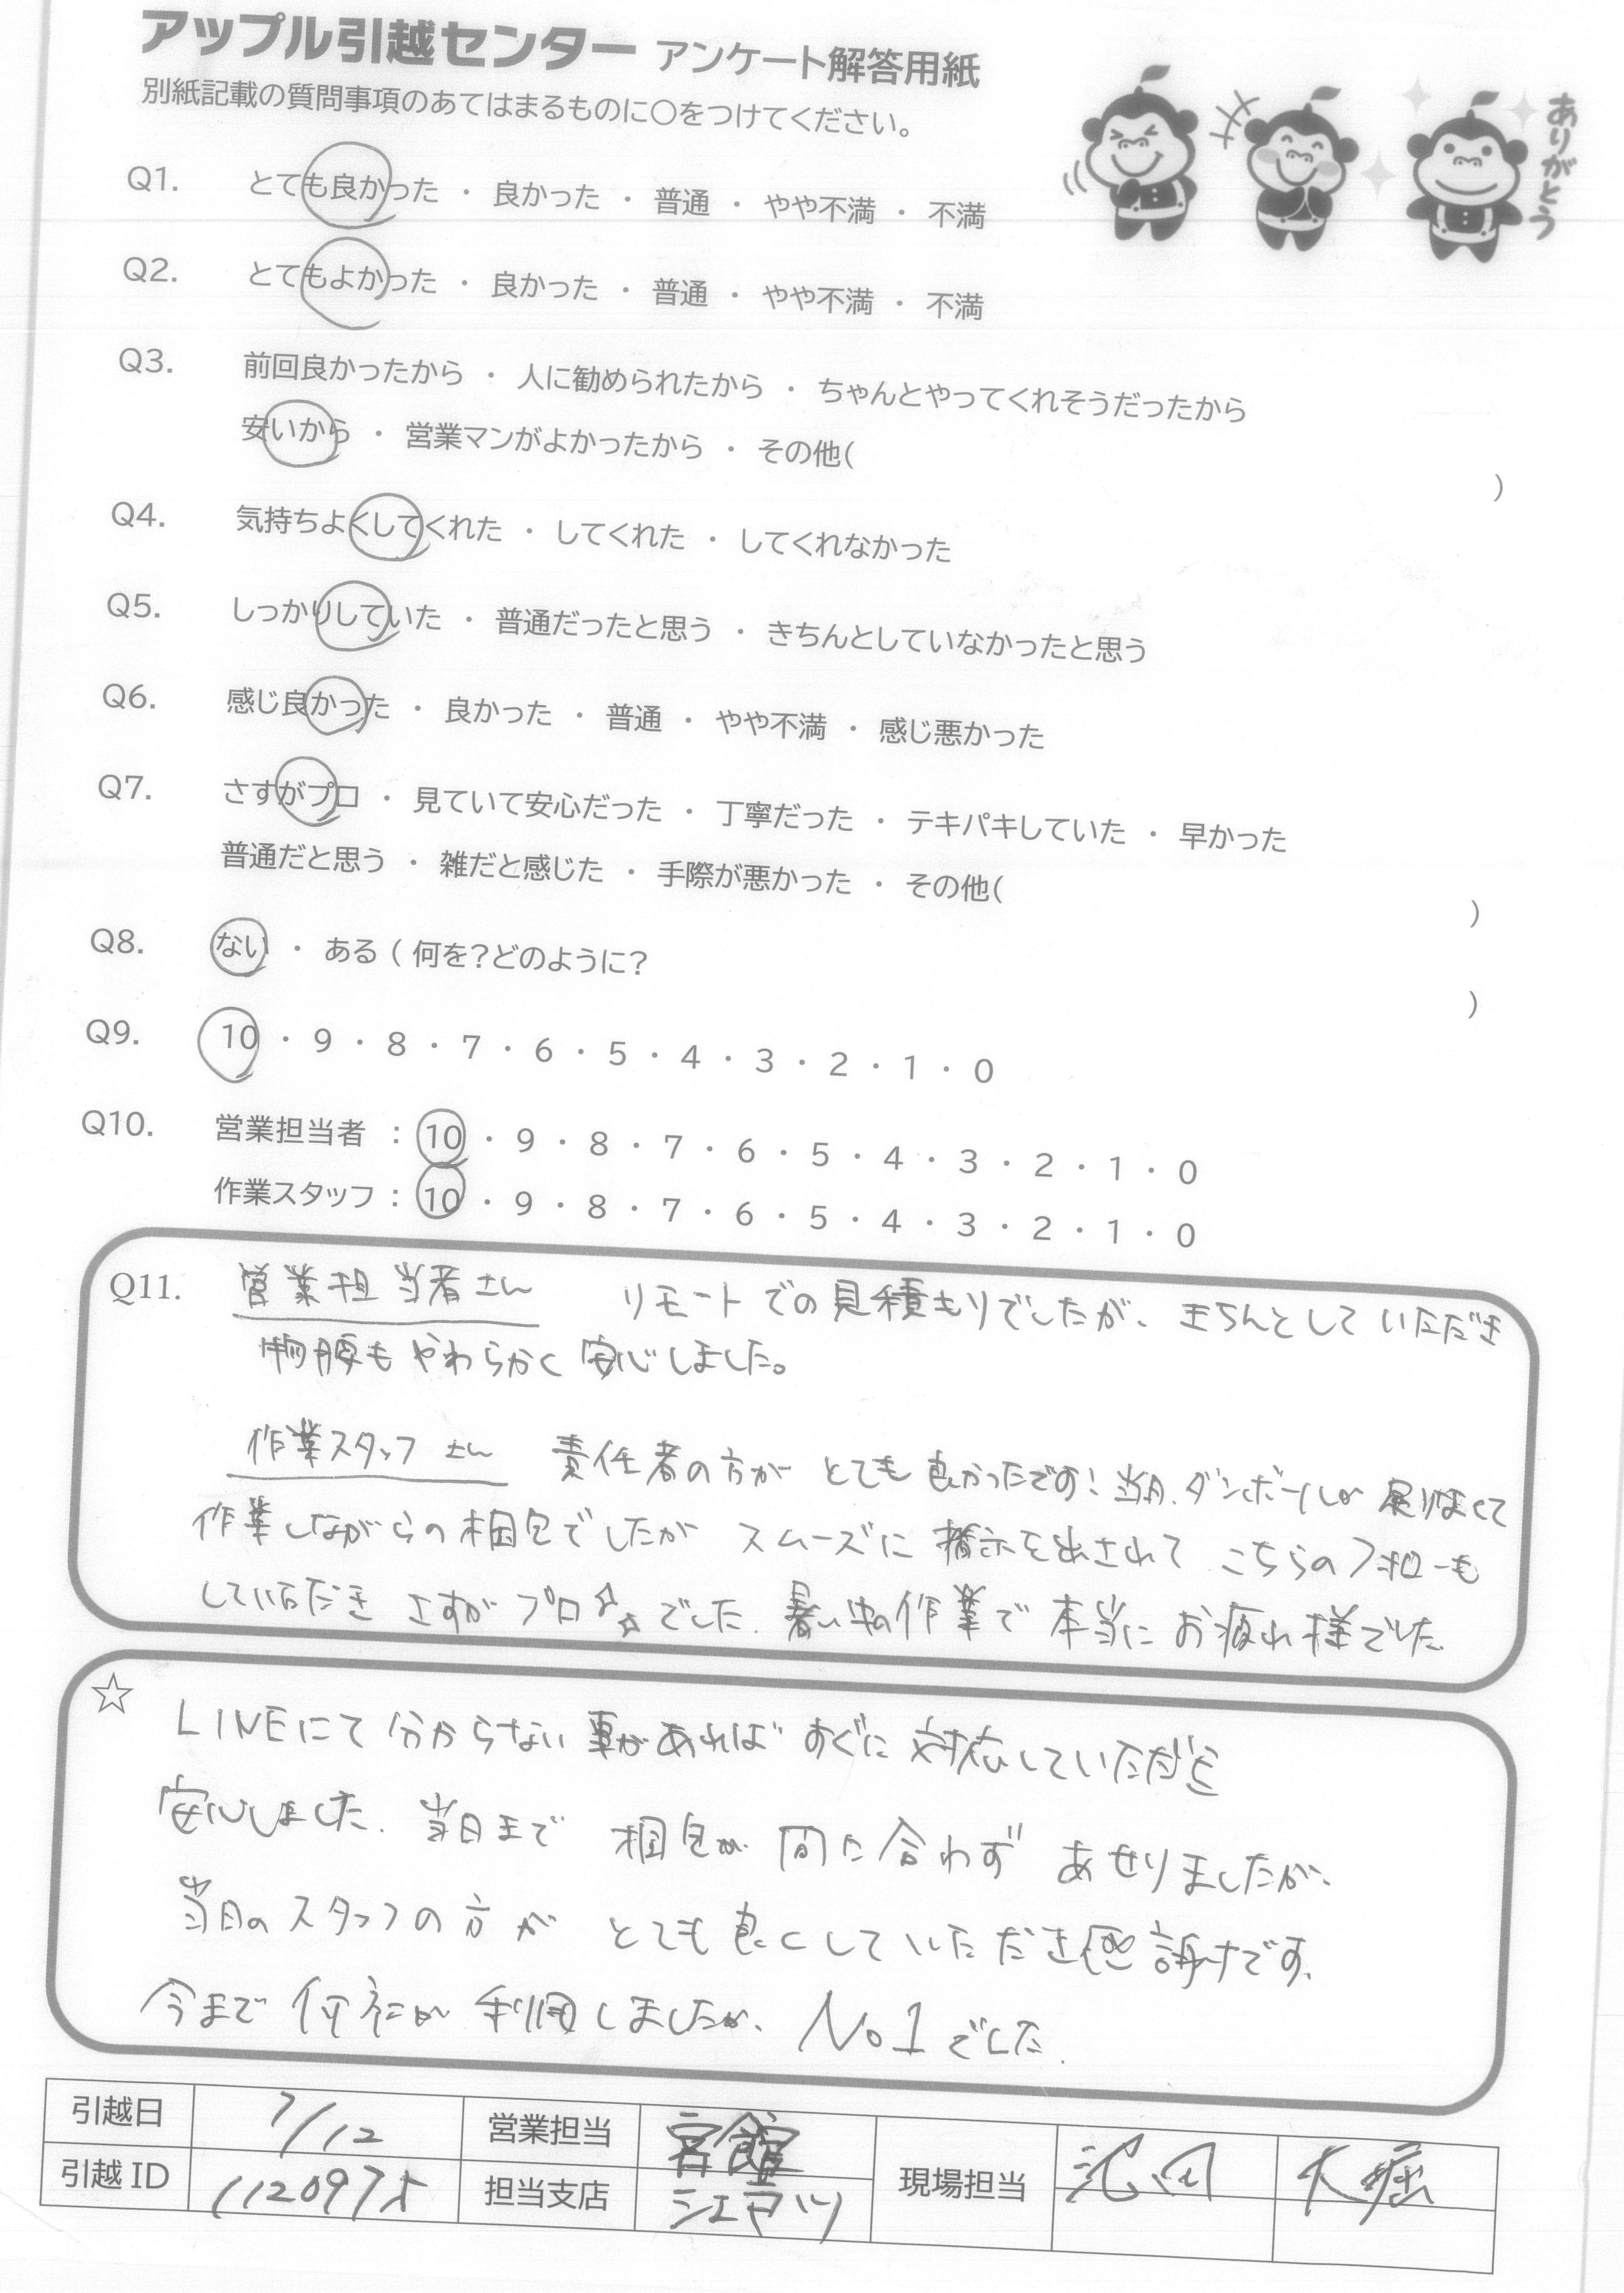 アップル引越センター アンケート解答用紙
別紙記載の質問事項のあてはまるものに○をつけてください。
ありがとう
Q1. とても良かった ・ 良かった ・ 普通 ・ やや不満 ・ 不満
Q2. とてもよかった ・ 良かった ・ 普通 ・ やや不満 ・ 不満
Q3. 前回良かったから ・ 人に勧められたから ・ ちゃんとやってくれそうだったから
安いから ・ 営業マンがよかったから ・ その他( )
Q4. 気持ちよくしてくれた ・ してくれた ・ してくれなかった
Q5. しっかりしていた ・ 普通だったと思う ・ きちんとしていなかったと思う
Q6. 感じ良かった ・ 良かった ・ 普通 ・ やや不満 ・ 感じ悪かった
Q7. さすがプロ ・ 見ていて安心だった ・ 丁寧だった ・ テキパキしていた ・ 早かった
普通だと思う ・ 雑だと感じた ・ 手際が悪かった ・ その他( )
Q8. ない ・ ある ( 何を?どのように? )
Q9. 10 ・ 9 ・ 8 ・ 7 ・ 6 ・ 5 ・ 4 ・ 3 ・ 2 ・ 1 ・ 0
Q10. 営業担当者 : 10 ・ 9 ・ 8 ・ 7 ・ 6 ・ 5 ・ 4 ・ 3 ・ 2 ・ 1 ・ 0
作業スタッフ : 10 ・ 9 ・ 8 ・ 7 ・ 6 ・ 5 ・ 4 ・ 3 ・ 2 ・ 1 ・ 0
Q11. 営業担当者さん リモートでの見積もりでしたが、きちんとしていただき
物腰もやわらかく安心しました。
作業スタッフさん 責任者の方がとても良かったです!当日、ダンボールが足りなくて
作業しながらの梱包でしたが スムーズに指示を出されて こちらのフォローも
していただき さすがプロ☆☆でした. 暑い中の作業で本当にお疲れ様でした
☆ LINEにて分からない事があればすぐに対応していただき
安心しました. 当日まで 梱包が間に合わず あせりましたが、
当日のスタッフの方が とても良くしていただき感謝です.
今まで何社か利用しましたが、No1でした.
引越日 7/12 営業担当 宮舘 現場担当 池田 大堀
引越ID 1120975 担当支店